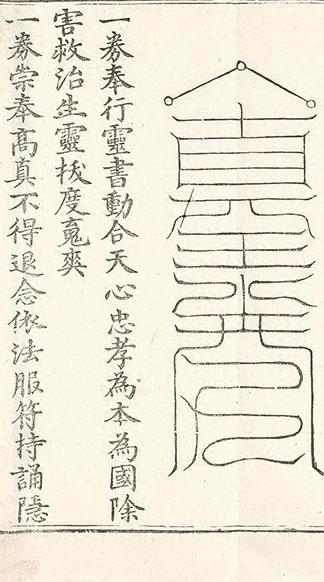 一券奉行靈書動合天心忠孝為本為國除
害救治生靈拔度䰟爽
一券崇奉髙真不得退念依法服符持誦隱